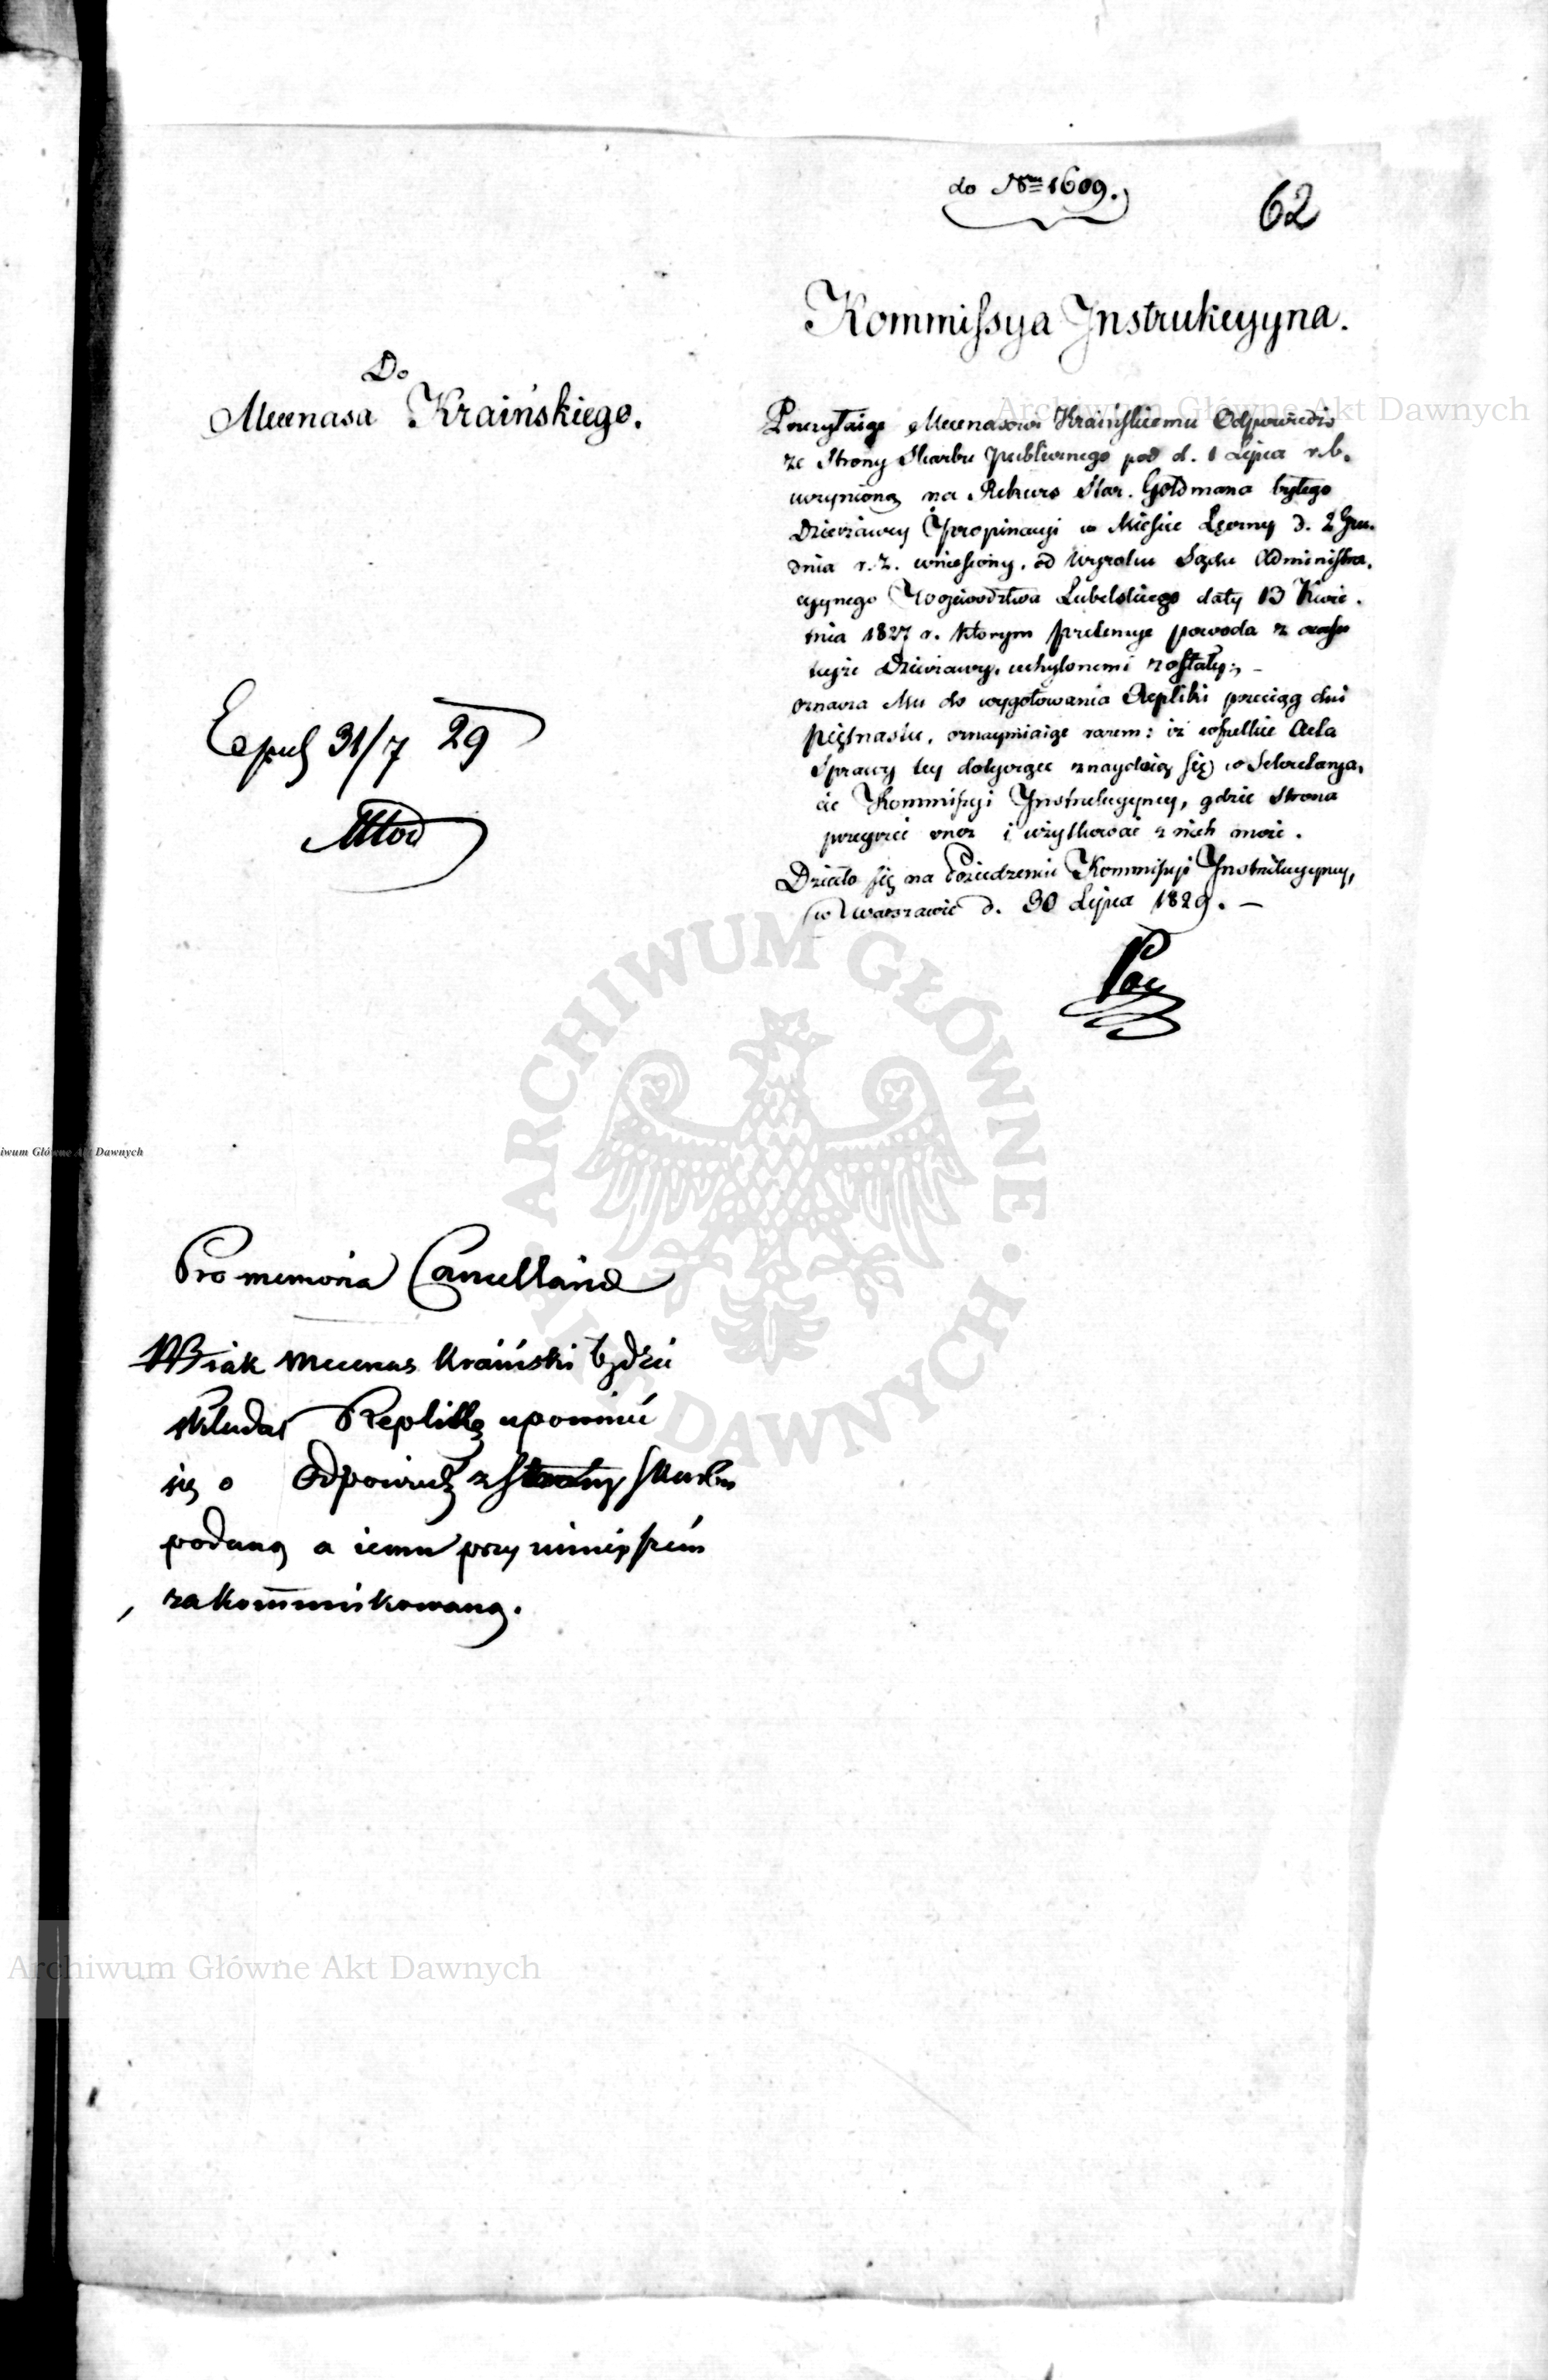 do Nru 1609.
62
Kommissya Instrukcyyna.
Do
Mecenasa Kraińskiego.
Przesyłaiąc Mecenasowi Kraińskiemu Odpowiedź
ze Strony Skarbu publicznego pod d. 1 Lipca r.b.
uczynioną na Rekurs Star. Goldmana byłego
Dzierżawcy Propinacyi w Mieście Łęczny d. 2 Gru.
dnia r. z. wniesiony, od wyroku Sądu Administra.
cyynego Województwa Lubelskiego daty 13 Kwie.
tnia 1827 r. którym pretensye powoda z
teyże Dzierżawy, uchylonemi zostały; –
oznacza Mu do wygotowania Repliki przeciąg dni
piętnastu, oznaymiaiąc razem: iż wszelkie Acta
Sprawy tey dotyczące znayduią się w Sekretarya.
cie Kommissyi Instrukcyyney, gdzie Strona
przeyrzeć one i użytkować z nich może.
Działo się na Posiedzeniu Kommissyi Instrukcyyney,
w Warszawie d. 30 Lipca 1829. –
Pac
Exped 31/7 29
Młod
Pro memoria Cancellariae
Jak Mecenas Kraiński będzie
składał Replikę upomnieć
się o Odpowiedź z strony Skarbu
podaną a iemu przy ninieyszém
zakommunikowaną.
Archiwum Główne Akt Dawnych
iwum Główne Akt Dawnych
ARCHIWUM GŁÓWNE · AKT DAWNYCH ·
Archiwum Główne Akt Dawnych